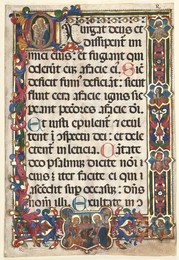 urgat deus et
dissipent̄ in
imici eius: et fugiant qui
oderūt eū a facie eiꝰ Sic̄
deficit fumꝰ deficiāt: sicut
fluit cera a facie ignis sic
peant pc̄cores a facie dei.
Et iusti epulent̄ et exulte
t ī 9spectu dei: et dele
ctent̄ in leticia Cātate
deo psalmū dicite noī ei
iter facite ei qui a
scēdit sup occasū: dn̄s
nom̄ illi. Exultate in